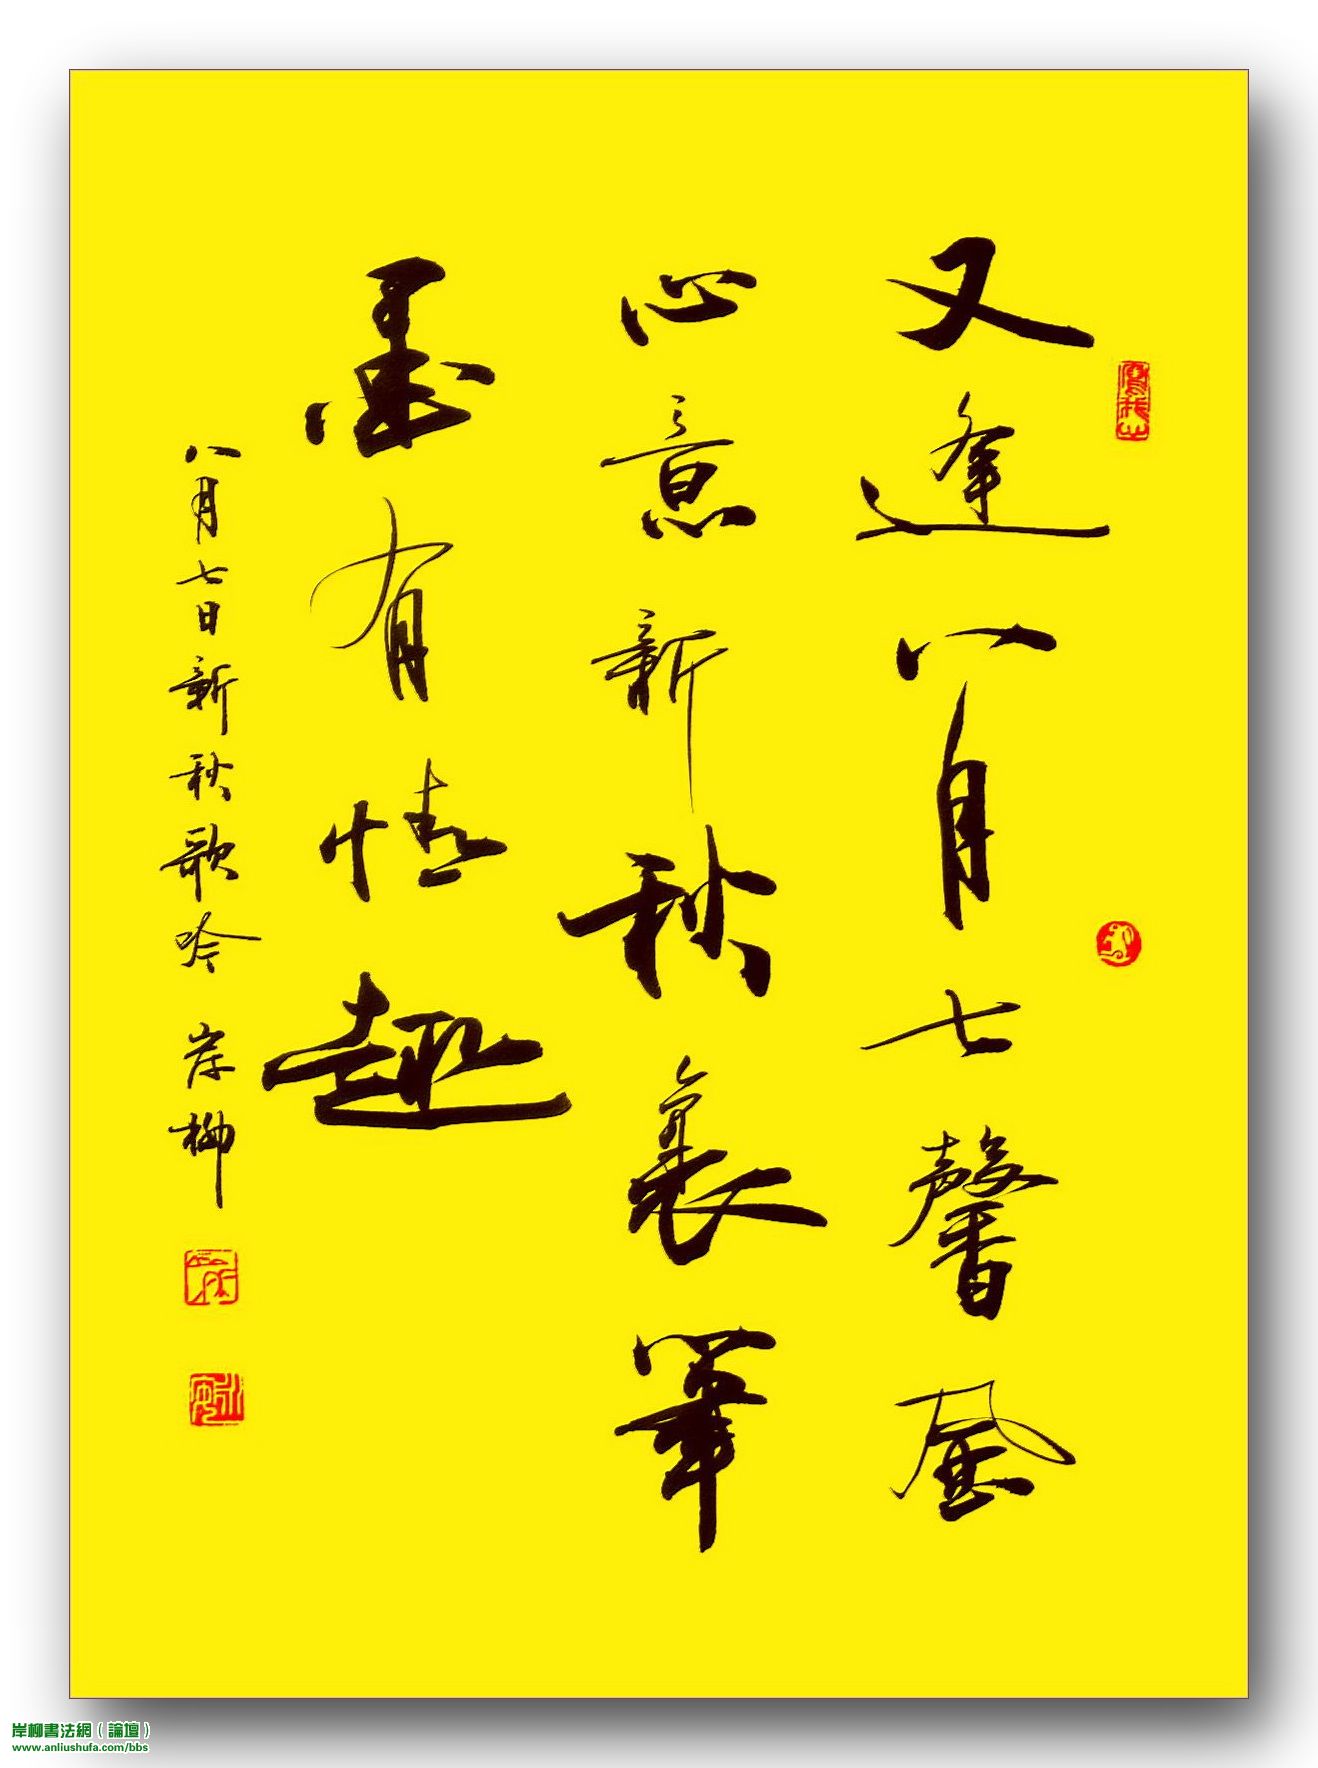 又逢八月七馨風
心意新秋裹筆
墨有情趣
八月七日新秋歌吟 岸柳
岸柳書法網（論壇）
www.anliushufa.com/bbs